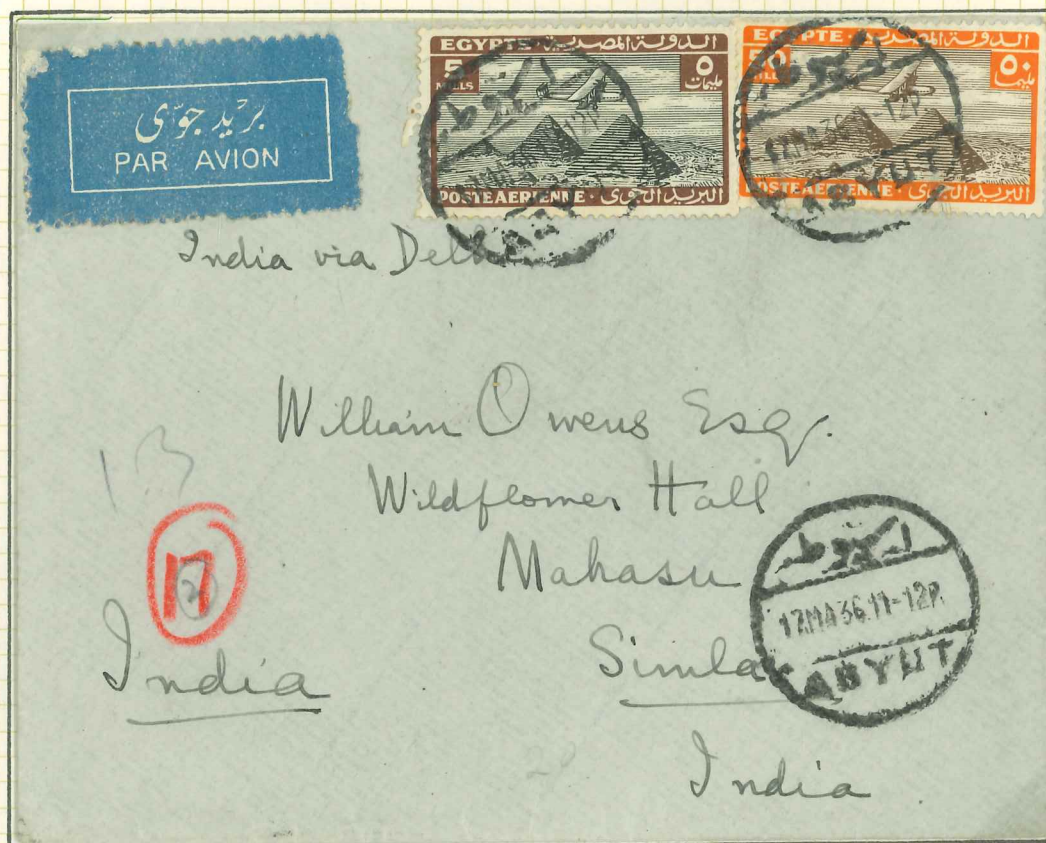 بريد جوّى
PAR AVION
EGYPTE · الدولة المصرية
5 ٥
MILLS مليمات
POSTE AERIENNE · البريد الجوى
EGYPTE · الدولة المصرية
50 ٥٠
MILLS مليمت
POSTE AERIENNE · البريد الجوى
اسيوط
17 MA 36 11-12P
India via Delhi
William Owens Esq.
Wildflower Hall
Mahasu
Simla
India
13
17
2
India
اسيوط
17.MA 36.11-12P.
ASYUT